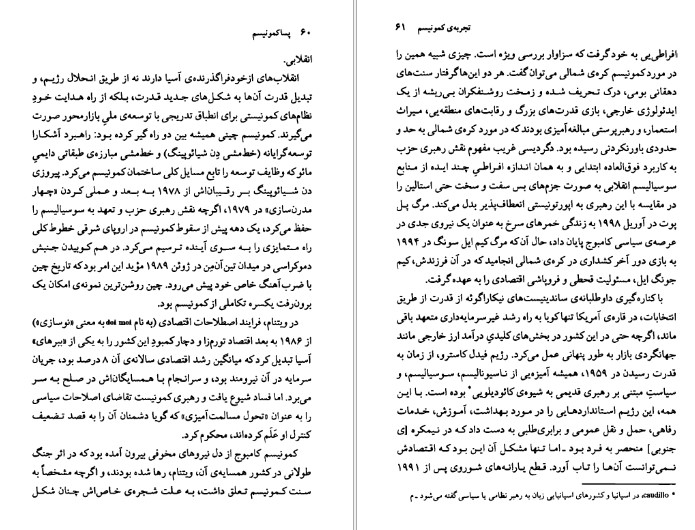 ۶۰ پساکمونیسم
انقلابی.
انقلاب‌های ازخودفراگذرنده‌ی آسیا دارند نه از طریق انحلال رژیم، و
تبدیل قدرت آن‌ها به شکل‌های جدید قدرت، بلکه از راه هدایت خودِ
نظام‌های کمونیستی برای انطباق تدریجی با توسعه‌ی ملیِ بازارمحور صورت
می‌گیرند. کمونیسم چینی همیشه بین دو راه گیر کرده بود: راهبرد آشکارا
توسعه‌گرایانه (خط‌مشی دِن شیائوپینگ) و خط‌مشی مبارزه‌ی طبقاتی دایمیِ
مائو که وظایف توسعه را تابع مسایل کلی ساختمان کمونیسم می‌کرد. پیروزی
دن شیائوپینگ بر رقیبان‌اش از ۱۹۷۸ به بعد و عملی کردن «چهار
مدرن‌سازی» در ۱۹۷۹، اگرچه نقش رهبری حزب و تعهد به سوسیالیسم را
حفظ می‌کرد، یک دهه پیش از سقوط کمونیسم در اروپای شرقی خطوط کلی
راه متمایزی را به سوی آینده ترسیم می‌کرد. در هم کوبیدن جنبش
دموکراسی در میدان تین‌آن‌مِن در ژوئن ۱۹۸۹ مؤید این امر بود که تاریخ چین
با ضرب‌آهنگ خاص خود پیش می‌رود. چین روشن‌ترین نمونه‌ی امکان یک
برون‌رفت یکسره تکاملی از کمونیسم بود.
در ویتنام، فرایند اصلاحات اقتصادی (به نام doi moi به معنی «نوسازی»)
از ۱۹۸۶ به بعد اقتصاد تورم‌زا و دچار کمبودِ این کشور را به یکی از «ببرهای»
آسیا تبدیل کرد که میانگین رشد اقتصادی سالانه‌ی آن ۸ درصد بود، جریان
سرمایه در آن نیرومند بود، و سرانجام با همسایگان‌اش در صلح به سر
می‌برد. اما فساد شیوع یافت و رهبری کمونیست تقاضای اصلاحات سیاسی
را به عنوان «تحول مسالمت‌آمیزی» که گویا دشمنان آن را به قصد تضعیف
کنترل او عَلَم کرده‌اند، محکوم کرد.
کمونیسم کامبوج از دل نیروهای مخوفی بیرون آمده بود که در اثر جنگ
طولانی در کشور همسایه‌ی آن، ویتنام، رها شده بودند، و اگرچه مشخصاً به
سنت کمونیسم تعلق داشت، به علت شجره‌ی خاص‌اش چنان شکل
تجربه‌ی کمونیسم ۶۱
افراطی‌یی به خود گرفت که سزاوار بررسی ویژه است. چیزی شبیه همین را
در مورد کمونیسم کره‌ی شمالی می‌توان گفت. هر دو این‌ها گرفتار سنت‌های
دهقانی بومی، درک تحریف شده و زمخت روشنفکران بی‌ریشه از یک
ایدئولوژی خارجی، بازی قدرت‌های بزرگ و رقابت‌های منطقه‌یی، میراث
استعمار، و رهبرپرستی مبالغه‌آمیزی بودند که در مورد کره‌ی شمالی به حد و
حدودی باورنکردنی رسیده بود. دگردیسی غریب مفهوم نقش رهبری حزب
به کاربرد فوق‌العاده ابتدایی و به همان اندازه افراطیِ چند ایده از منابع
سوسیالیسم انقلابی به صورت جزم‌های بس سفت و سخت حتی استالین را
در مقایسه با این رهبری به اپورتونیستی انعطاف‌پذیر بدل می‌کند. مرگ پل
پوت در آوریل ۱۹۹۸ به زندگی خمرهای سرخ به عنوان یک نیروی جدی در
عرصه‌ی سیاسی کامبوج پایان داد، حال آن‌که مرگ کیم ایل سونگ در ۱۹۹۴
به بازی دور آخر کشداری در کره‌ی شمالی انجامید که در آن فرزندش، کیم
جونگ ایل، مسئولیت قحطی و فروپاشی اقتصادی را به عهده گرفت.
با کناره‌گیری داوطلبانه‌ی ساندینیست‌های نیکاراگوئه از قدرت از طریق
انتخابات، در قاره‌ی آمریکا تنها کوبا به راه رشد غیرسرمایه‌داری متعهد باقی
ماند، اگرچه حتی در این کشور در بخش‌های کلیدیِ درآمد ارز خارجی مانند
جهانگردی بازار به طور پنهانی عمل می‌کرد. رژیم فیدل کاسترو، از زمان به
قدرت رسیدن در ۱۹۵۹، همیشه آمیزه‌یی از ناسیونالیسم، سوسیالیسم، و
سیاستِ مبتنی بر رهبری قدیمی به شیوه‌ی کائودیلویی* بوده است. با این
همه، این رژیم استانداردهایی را در مورد بهداشت، آموزش، خدمات
رفاهی، حمل و نقل عمومی و برابری‌طلبی به دست داد که در نیمکره [ی
جنوبی] منحصر به فرد بود ـ اما تنها مشکل آن این بود که اقتصادش
نمی‌توانست آن‌ها را تاب آورد. قطع یارانه‌های شوروی پس از ۱۹۹۱
* caudillo، در اسپانیا و کشورهای اسپانیایی زبان به رهبر نظامی یا سیاسی گفته می‌شود ـ م